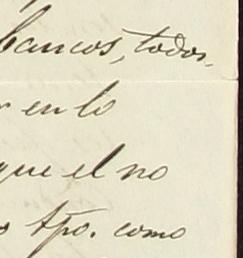 bancos, todos
r en lo
que el no
o tpo. como